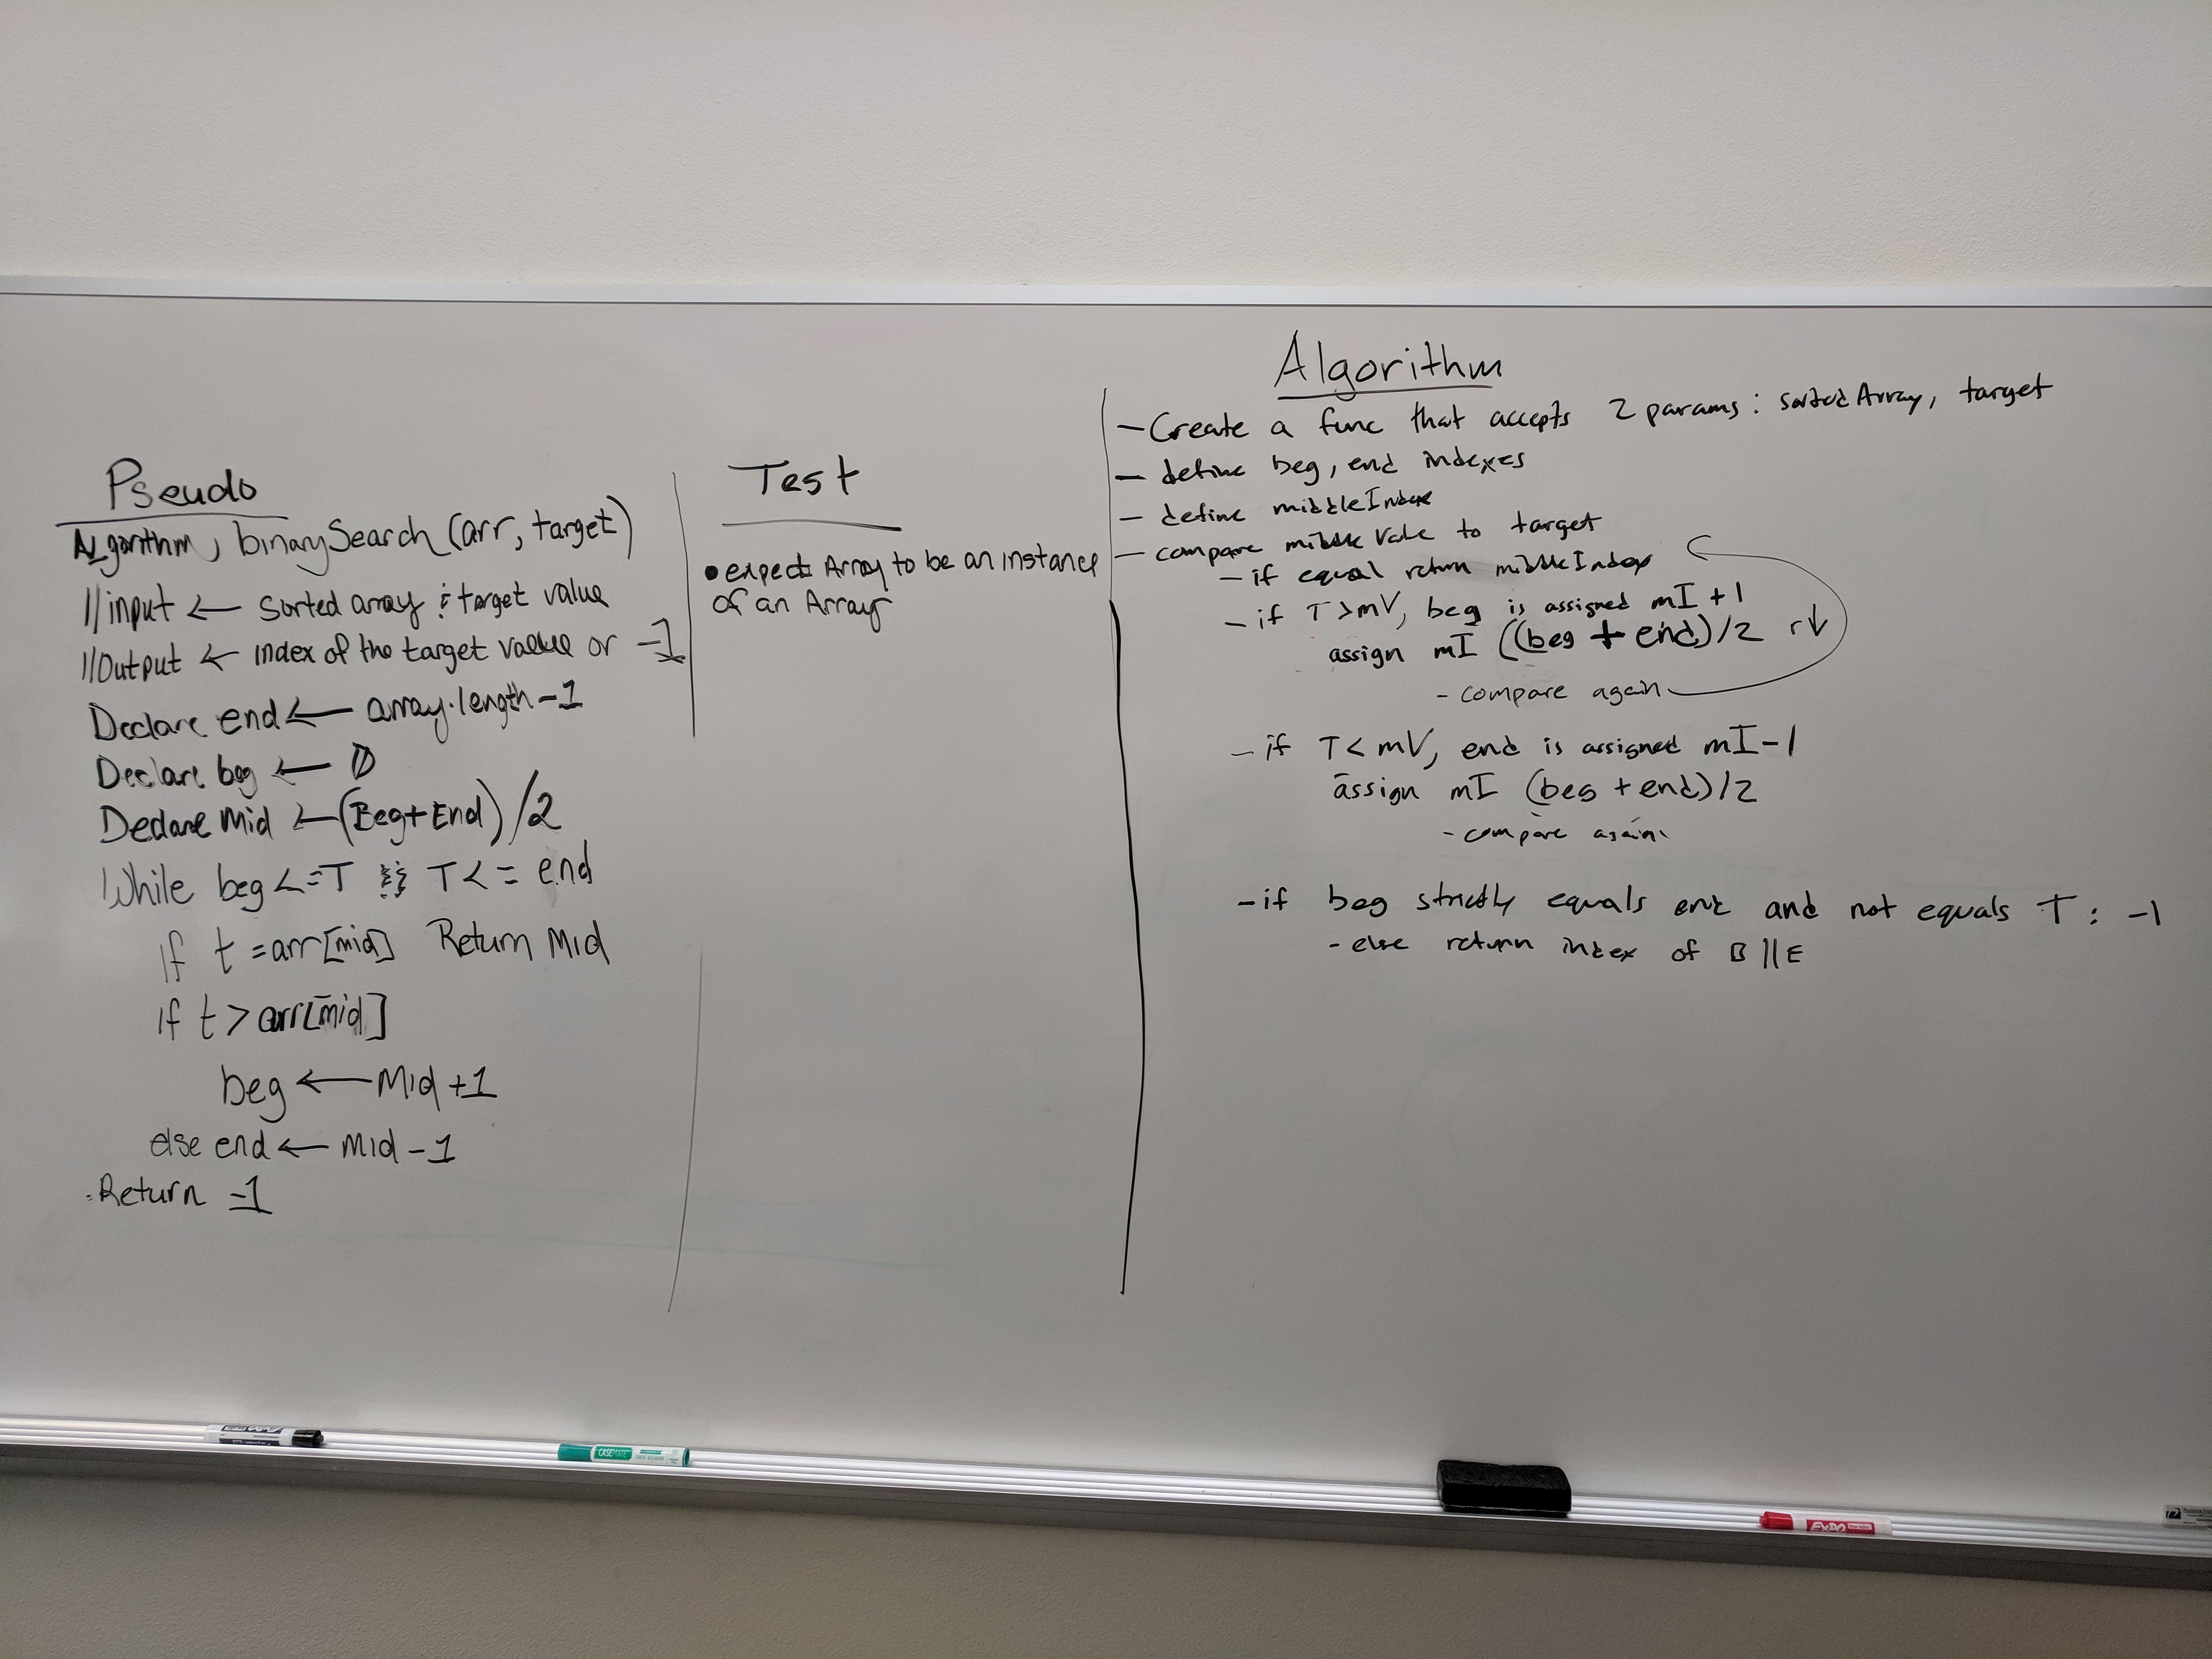 Pseudo
Algorithm, binarySearch (arr, target)
//input ← sorted array & target value
//Output ← index of the target value or -1
Declare end ← array.length-1
Declare beg ← 0
Declare Mid ← (Beg+End)/2
While beg <= T && T <= end
If t = arr[mid] Return Mid
If t > arr[mid]
beg ← Mid +1
else end ← Mid -1
Return -1
Test
• expect Array to be an instance
of an Array
Algorithm
- Create a func that accepts 2 params: sortedArray, target
- define beg, end indexes
- define middleIndex
- compare middle Value to target
- if equal return middleIndex
- if T > mV, beg is assigned mI +1
assign mI ((beg + end)/2 r↓
- compare again
- if T < mV, end is assigned mI-1
assign mI (beg + end)/2
- compare again
- if beg strictly equals end and not equals T : -1
- else return index of B || E
CASEMATE
EXPO